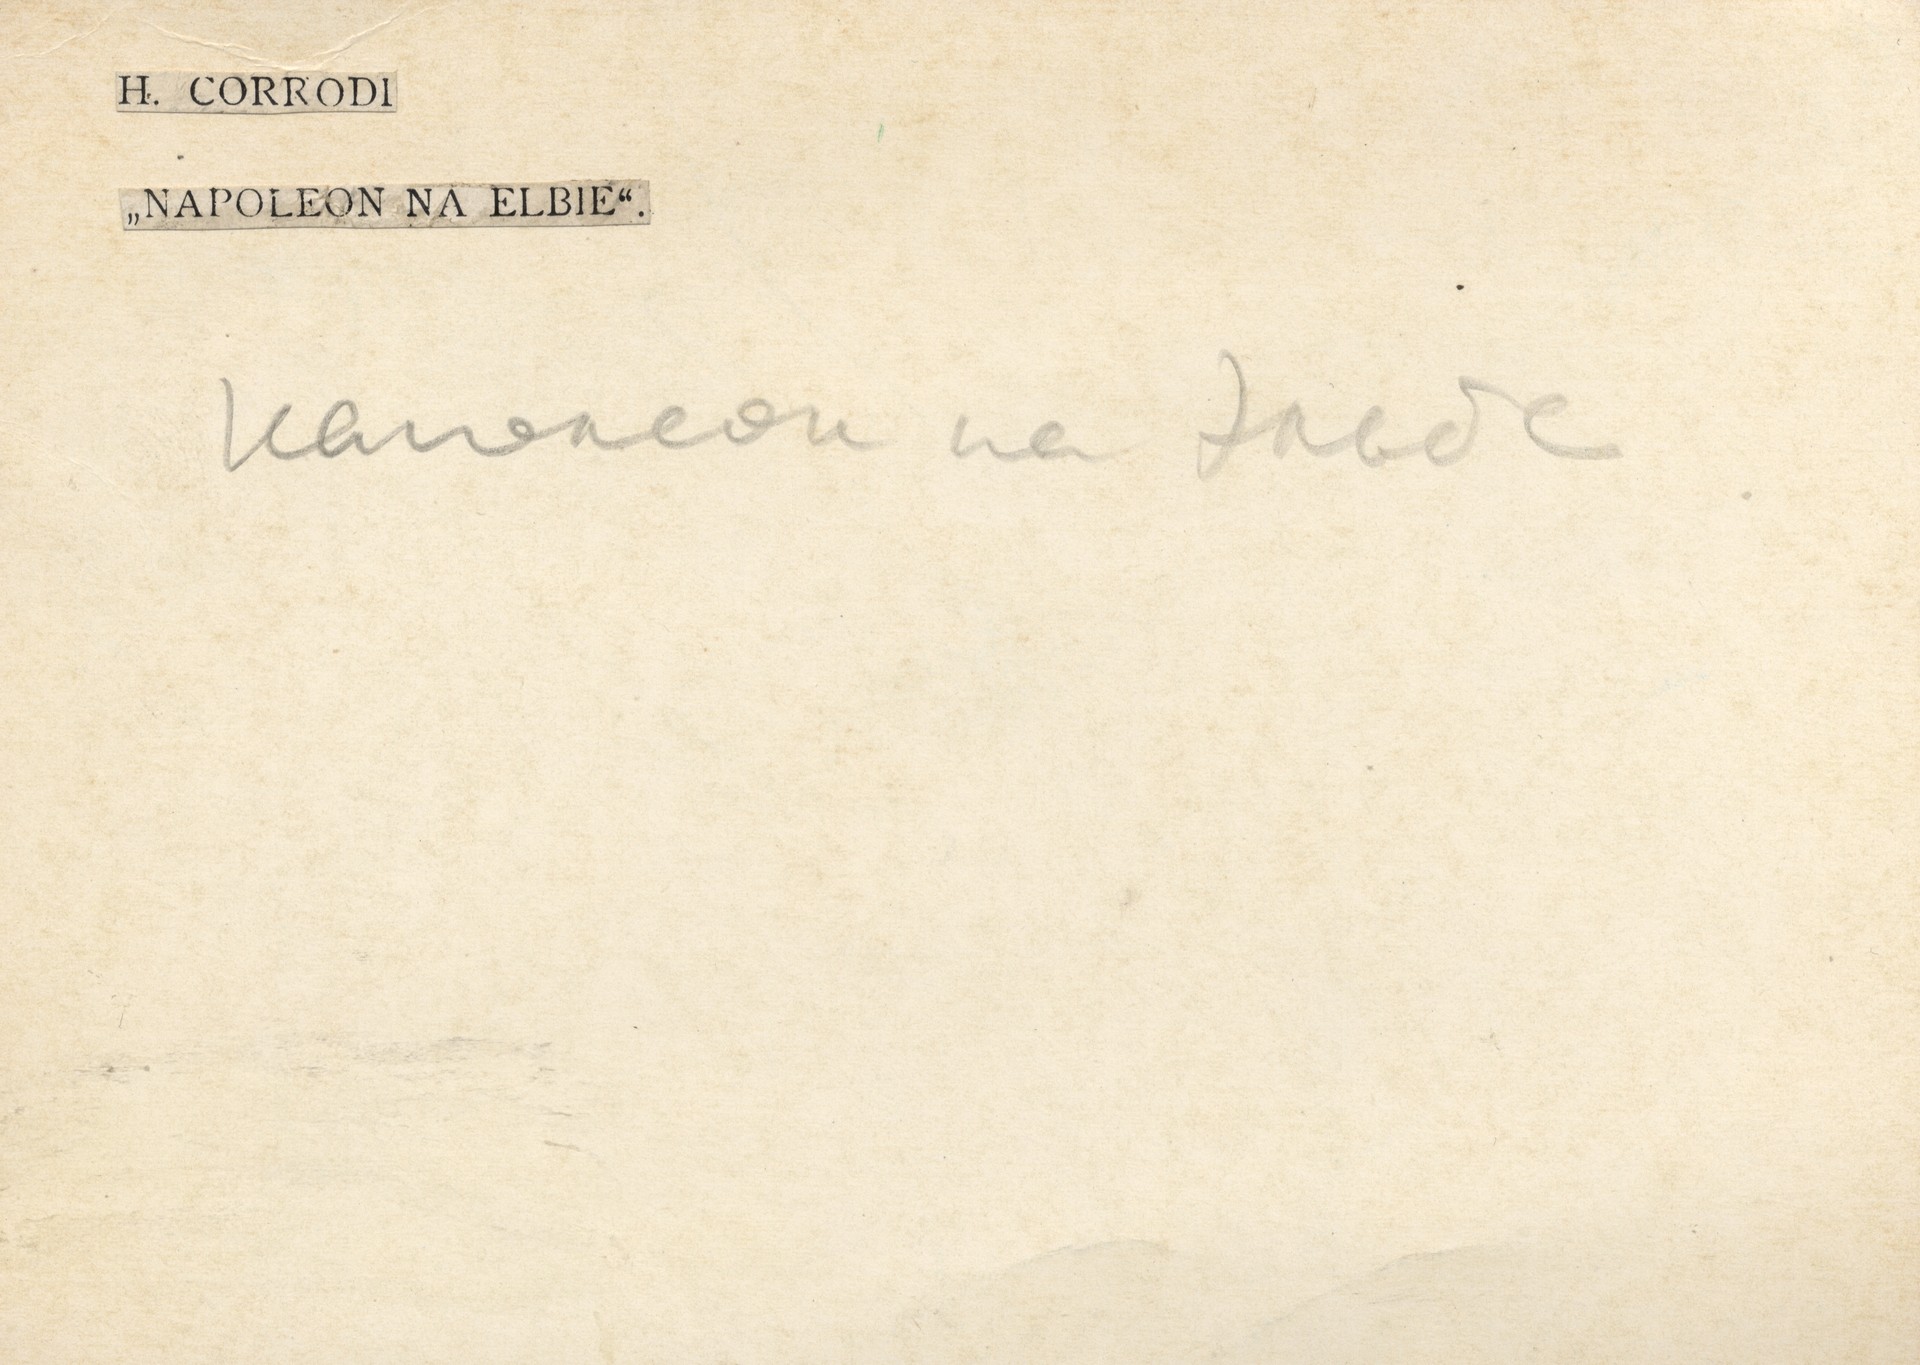 H. CORRODI
„NAPOLEON NA ELBIE“.
Наполеон на Эльбе